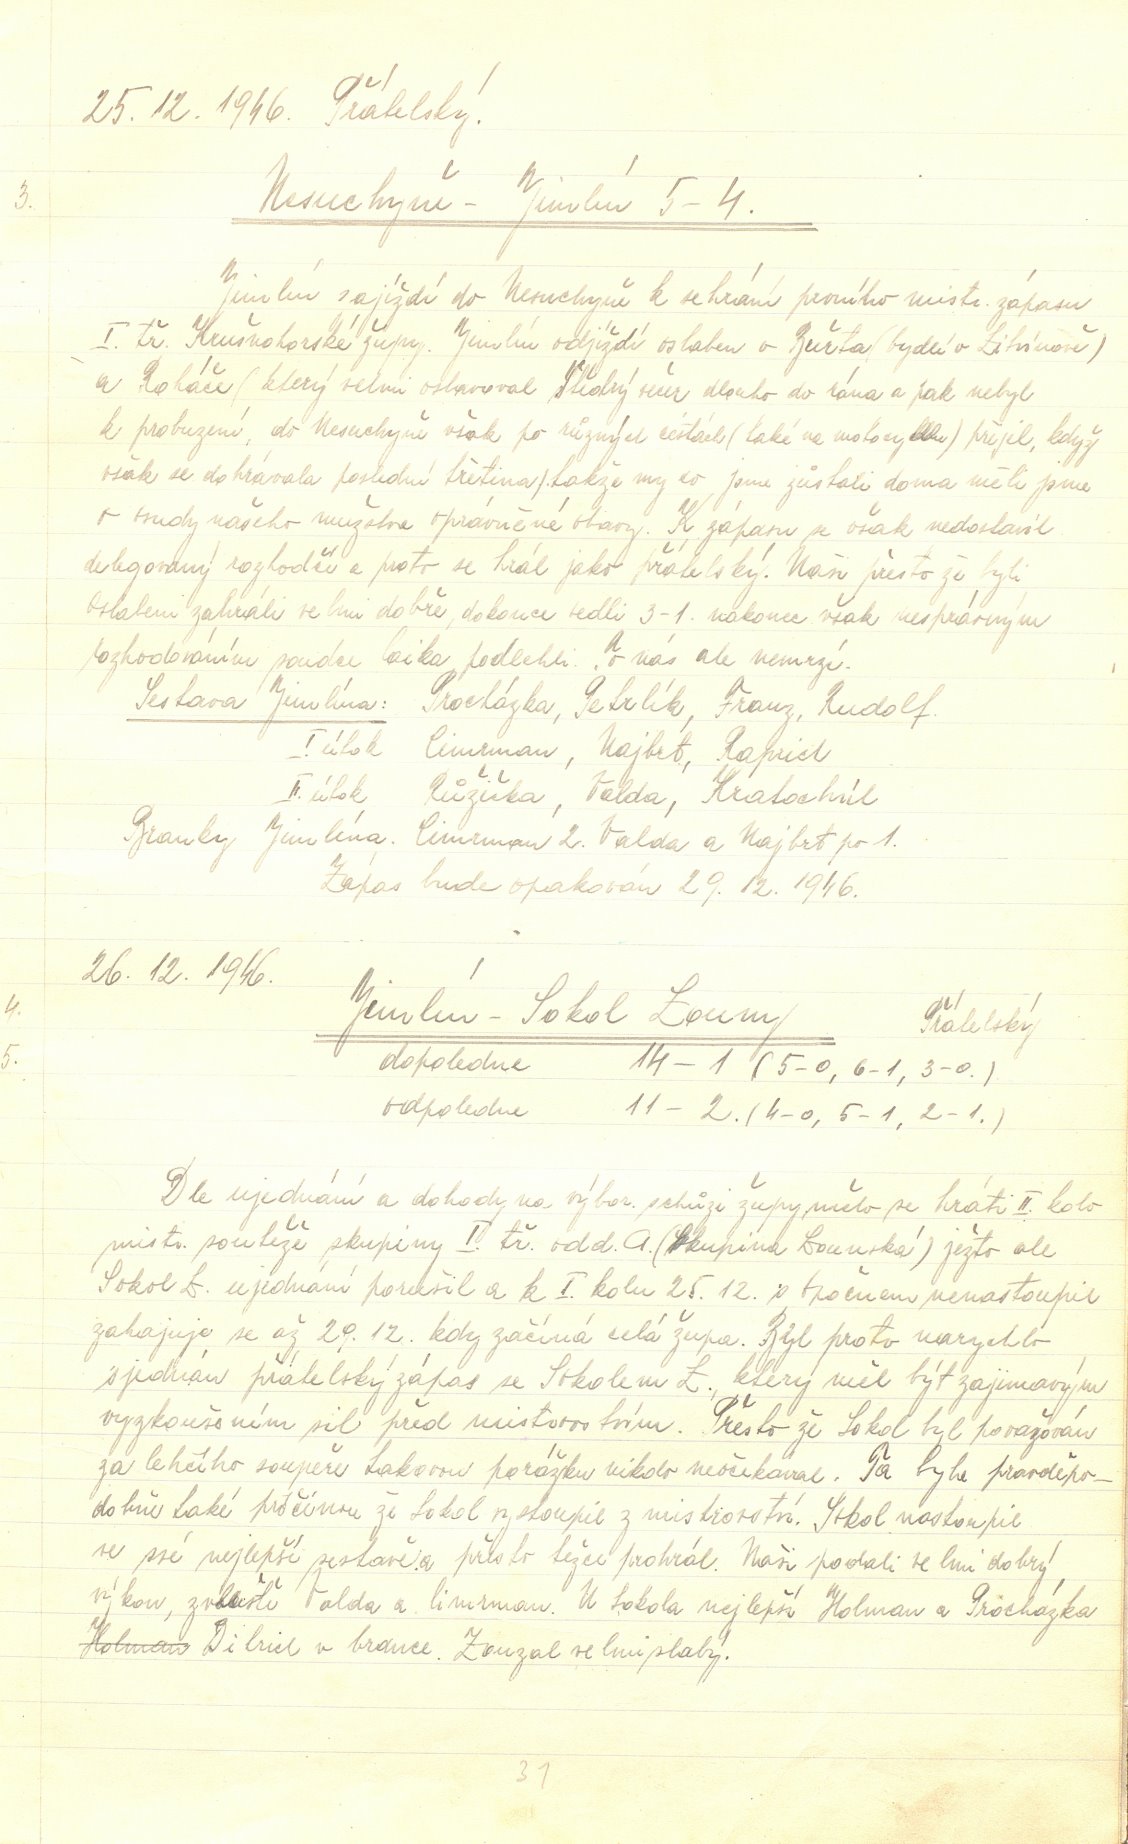 25. 12. 1946. Přátelský.
3.
Nesuchyně - Jimlín 5 - 4.
Jimlín zajíždí do Nesuchyně k sehrání prvního mistr. zápasu
I. tř. Krušnohorské župy. Jimlín odjíždí oslaben o Bušta (bydlí v Litvínově)
a Roháče (který velmi oslavoval Štědrý večer dlouho do rána a pak nebyl
k probuzení, do Nesuchyně však po různých cestách (také na motocyklu) přijel, když
však se dohrávala poslední třetina). takže my co jsme zůstali doma měli jsme
o osudy našeho mužstva oprávněné obavy. K zápasu se však nedostavil
delegovaný rozhodčí a proto se hrál jako přátelský. Naši přesto že byli
oslabeni zahráli velmi dobře, dokonce vedli 3-1. nakonec však nesprávným
rozhodováním soudce laika podlehli. To nás ale nemrzí.
Sestava Jimlína: Procházka, Petrlík, Franz, Rudolf.
I útok Cimrman, Najbrt, Raprich
II. útok Růžička, Valda, Kratochvíl
Branky Jimlína. Cimrman 2. Valda a Najbrt po 1.
Zápas bude opakován 29. 12. 1946.
26. 12. 1946.
4.
Jimlín - Sokol Louny Přátelský
5.
dopoledne 14 - 1 (5-0, 6-1, 3-0.)
odpoledne 11 - 2. (4-0, 5-1, 2-1.)
Dle ujednání a dohody na výbor. schůzi župy, mělo se hráti II. kolo
mistr. soutěže skupiny I. tř. odd. A. (Skupina Lounská) ježto ale
Sokol L. ujednání porušil a k I. kolu 25. 12. v Opočnem nenastoupil
zahajuje se až 29. 12. kdy začíná celá župa. Byl proto narychlo
sjednán přátelský zápas se Sokolem L., který měl být zajímavým
vyzkoušením sil před mistrovstvím. Přesto že Sokol byl považován
za lehčího soupeře takovou porážku nikdo neočekával. Ta byla pravděpo-
dobně také příčinou že Sokol vystoupil z mistrovství. Sokol nastoupil
ve své nejlepší sestavě a přesto těžce prohrál. Naši podali velmi dobrý
výkon, zvláště Valda a Cimrman. U Sokola nejlepší Holman a Procházka
Holman Ditrich v brance. Zouzal velmi slabý.
31